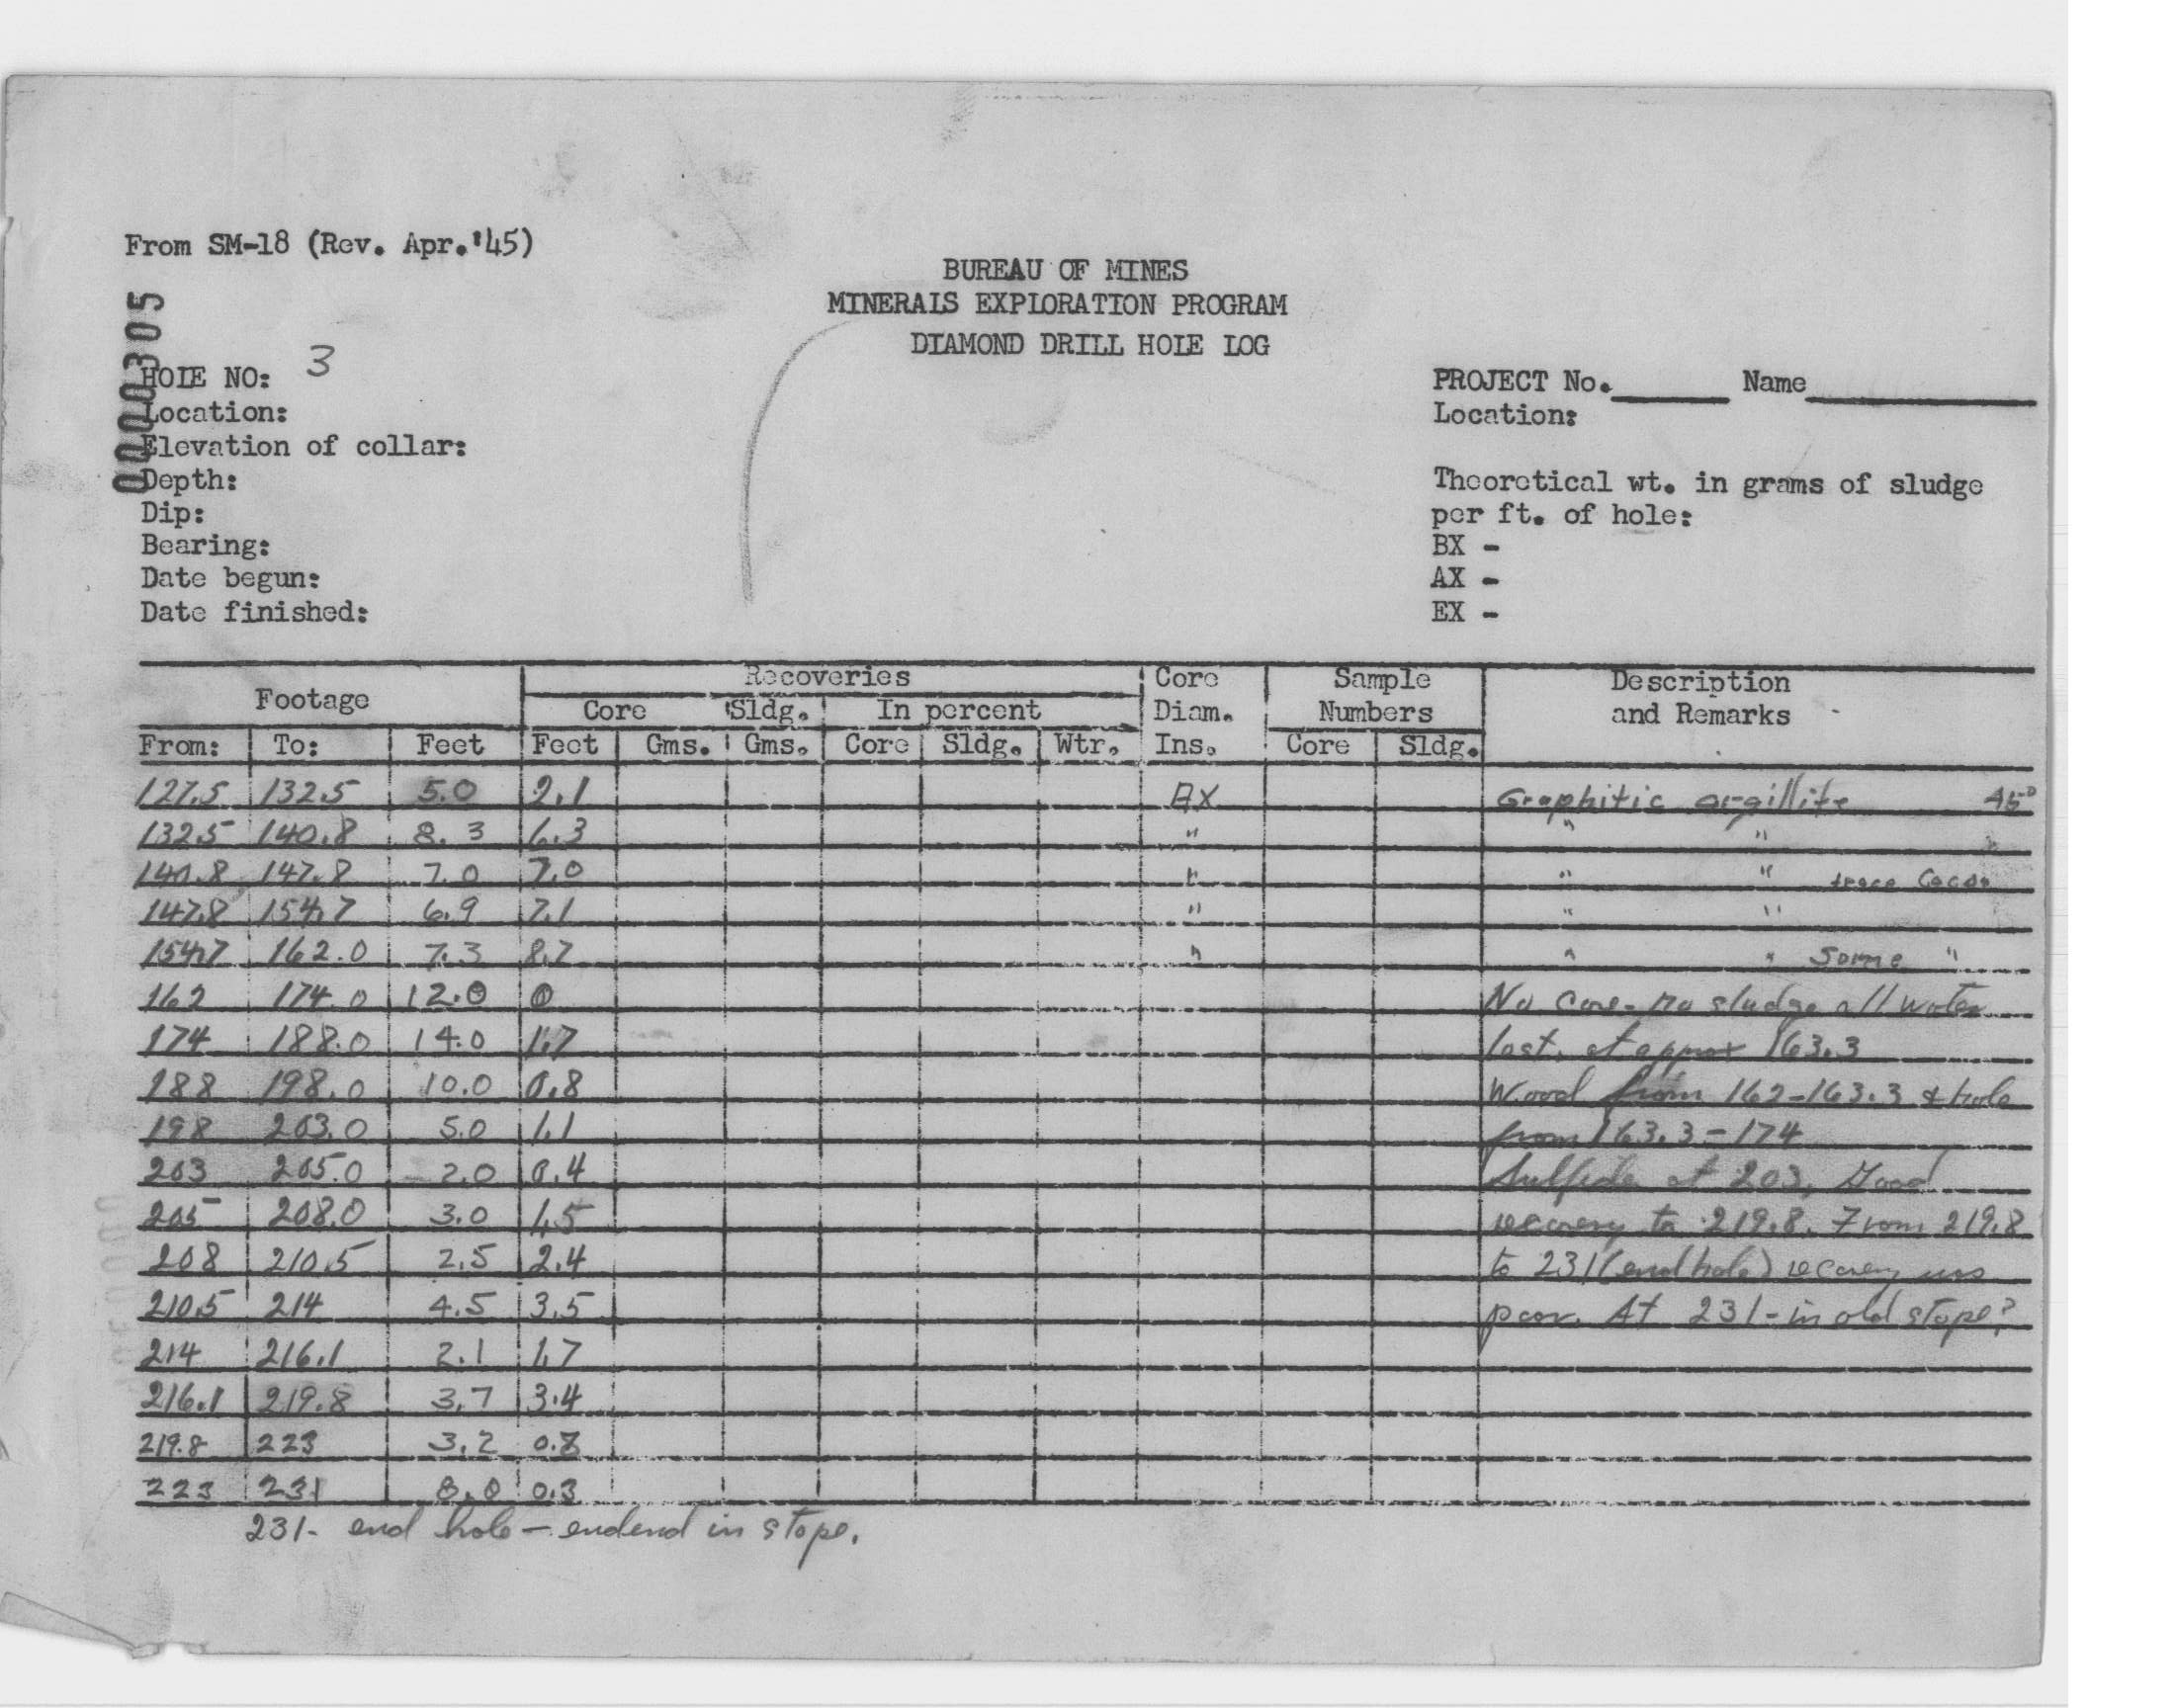 From SM-18 (Rev. Apr.'45)
BUREAU OF MINES
MINERALS EXPLORATION PROGRAM
DIAMOND DRILL HOLE LOG
0000305
HOLE NO: 3
Location:
Elevation of collar:
Depth:
Dip:
Bearing:
Date begun:
Date finished:
PROJECT No. Name
Location:
Theoretical wt. in grams of sludge
per ft. of hole:
BX -
AX -
EX -
Footage Recoveries Core Sample Description
Core Sldg. In percent Diam. Numbers and Remarks
From: To: Feet Feet Gms. Gms. Core Sldg. Wtr. Ins. Core Sldg.
127.5 132.5 5.0 2.1 AX Graphitic argillite 45°
132.5 140.8 8.3 6.3 " " "
140.8 147.8 7.0 7.0 " " " trace
147.8 154.7 6.9 7.1 " " "
154.7 162.0 7.3 8.7 " " " Some "
162 174.0 12.0 0 No core - no sludge all water
174 188.0 14.0 1.7 lost, at approx 163.3
188 198.0 10.0 0.8 Wood from 162-163.3 & hole
198 203.0 5.0 1.1 from 163.3-174
203 205.0 2.0 0.4 Sulfide at 203, Good
205 208.0 3.0 1.5 recovery to 219.8. From 219.8
208 210.5 2.5 2.4 to 231 (end hole) recovery was
210.5 214 4.5 3.5 poor. At 231 - in old stope?
214 216.1 2.1 1.7
216.1 219.8 3.7 3.4
219.8 223 3.2
223 231 8.0 0.3
231- end hole - endend in stope.